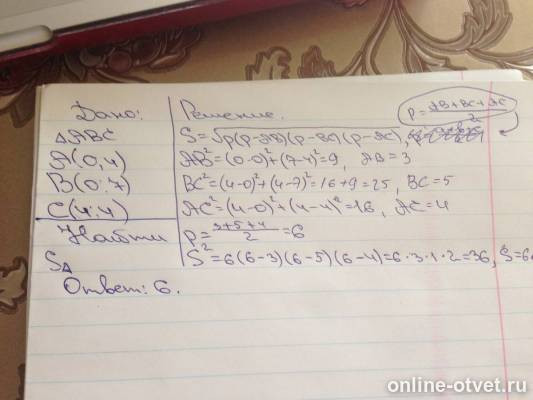 Дано:
△ABC
A(0;4)
B(0;7)
C(4;4)
Найти
S△
Ответ: 6.
Решение.
p=AB+BC+AC/2
S=√p(p-AB)(p-BC)(p-AC),
AB²=(0-0)²+(7-4)²=9, AB=3
BC²=(4-0)²+(4-7)²=16+9=25, BC=5
AC²=(4-0)²+(4-4)²=16, AC=4
p=3+5+4/2=6
S²=6(6-3)(6-5)(6-4)=6·3·1·2=36, S=6
online-otvet.ru